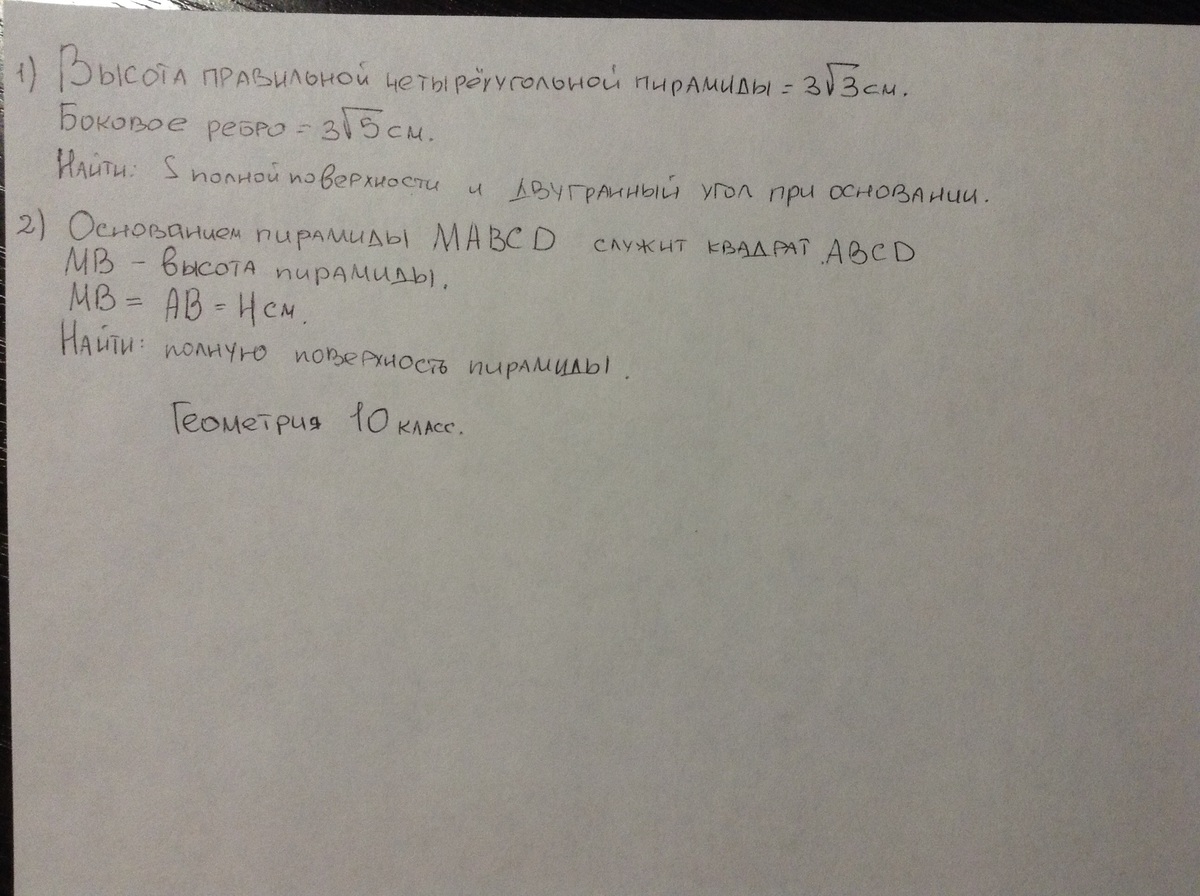 1) Высота правильной четырёхугольной пирамиды = 3√3 см.
Боковое ребро = 3√5 см.
Найти: S полной поверхности и двугранный угол при основании.
2) Основанием пирамиды MABCD служит квадрат ABCD
MB - высота пирамиды.
MB = AB = 4 см.
Найти: полную поверхность пирамиды.
Геометрия 10 класс.